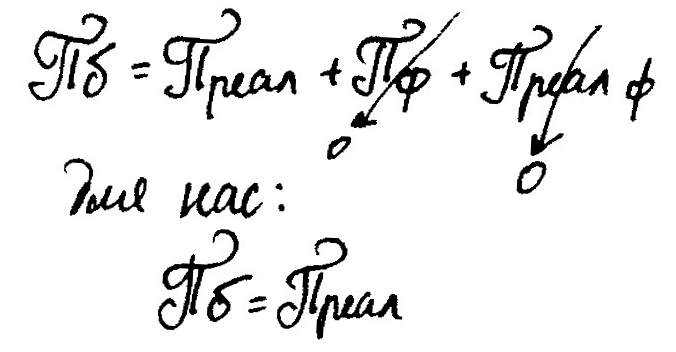 Пб = Преал + Пф + Преал ф
0 0
для нас:
Пб = Преал